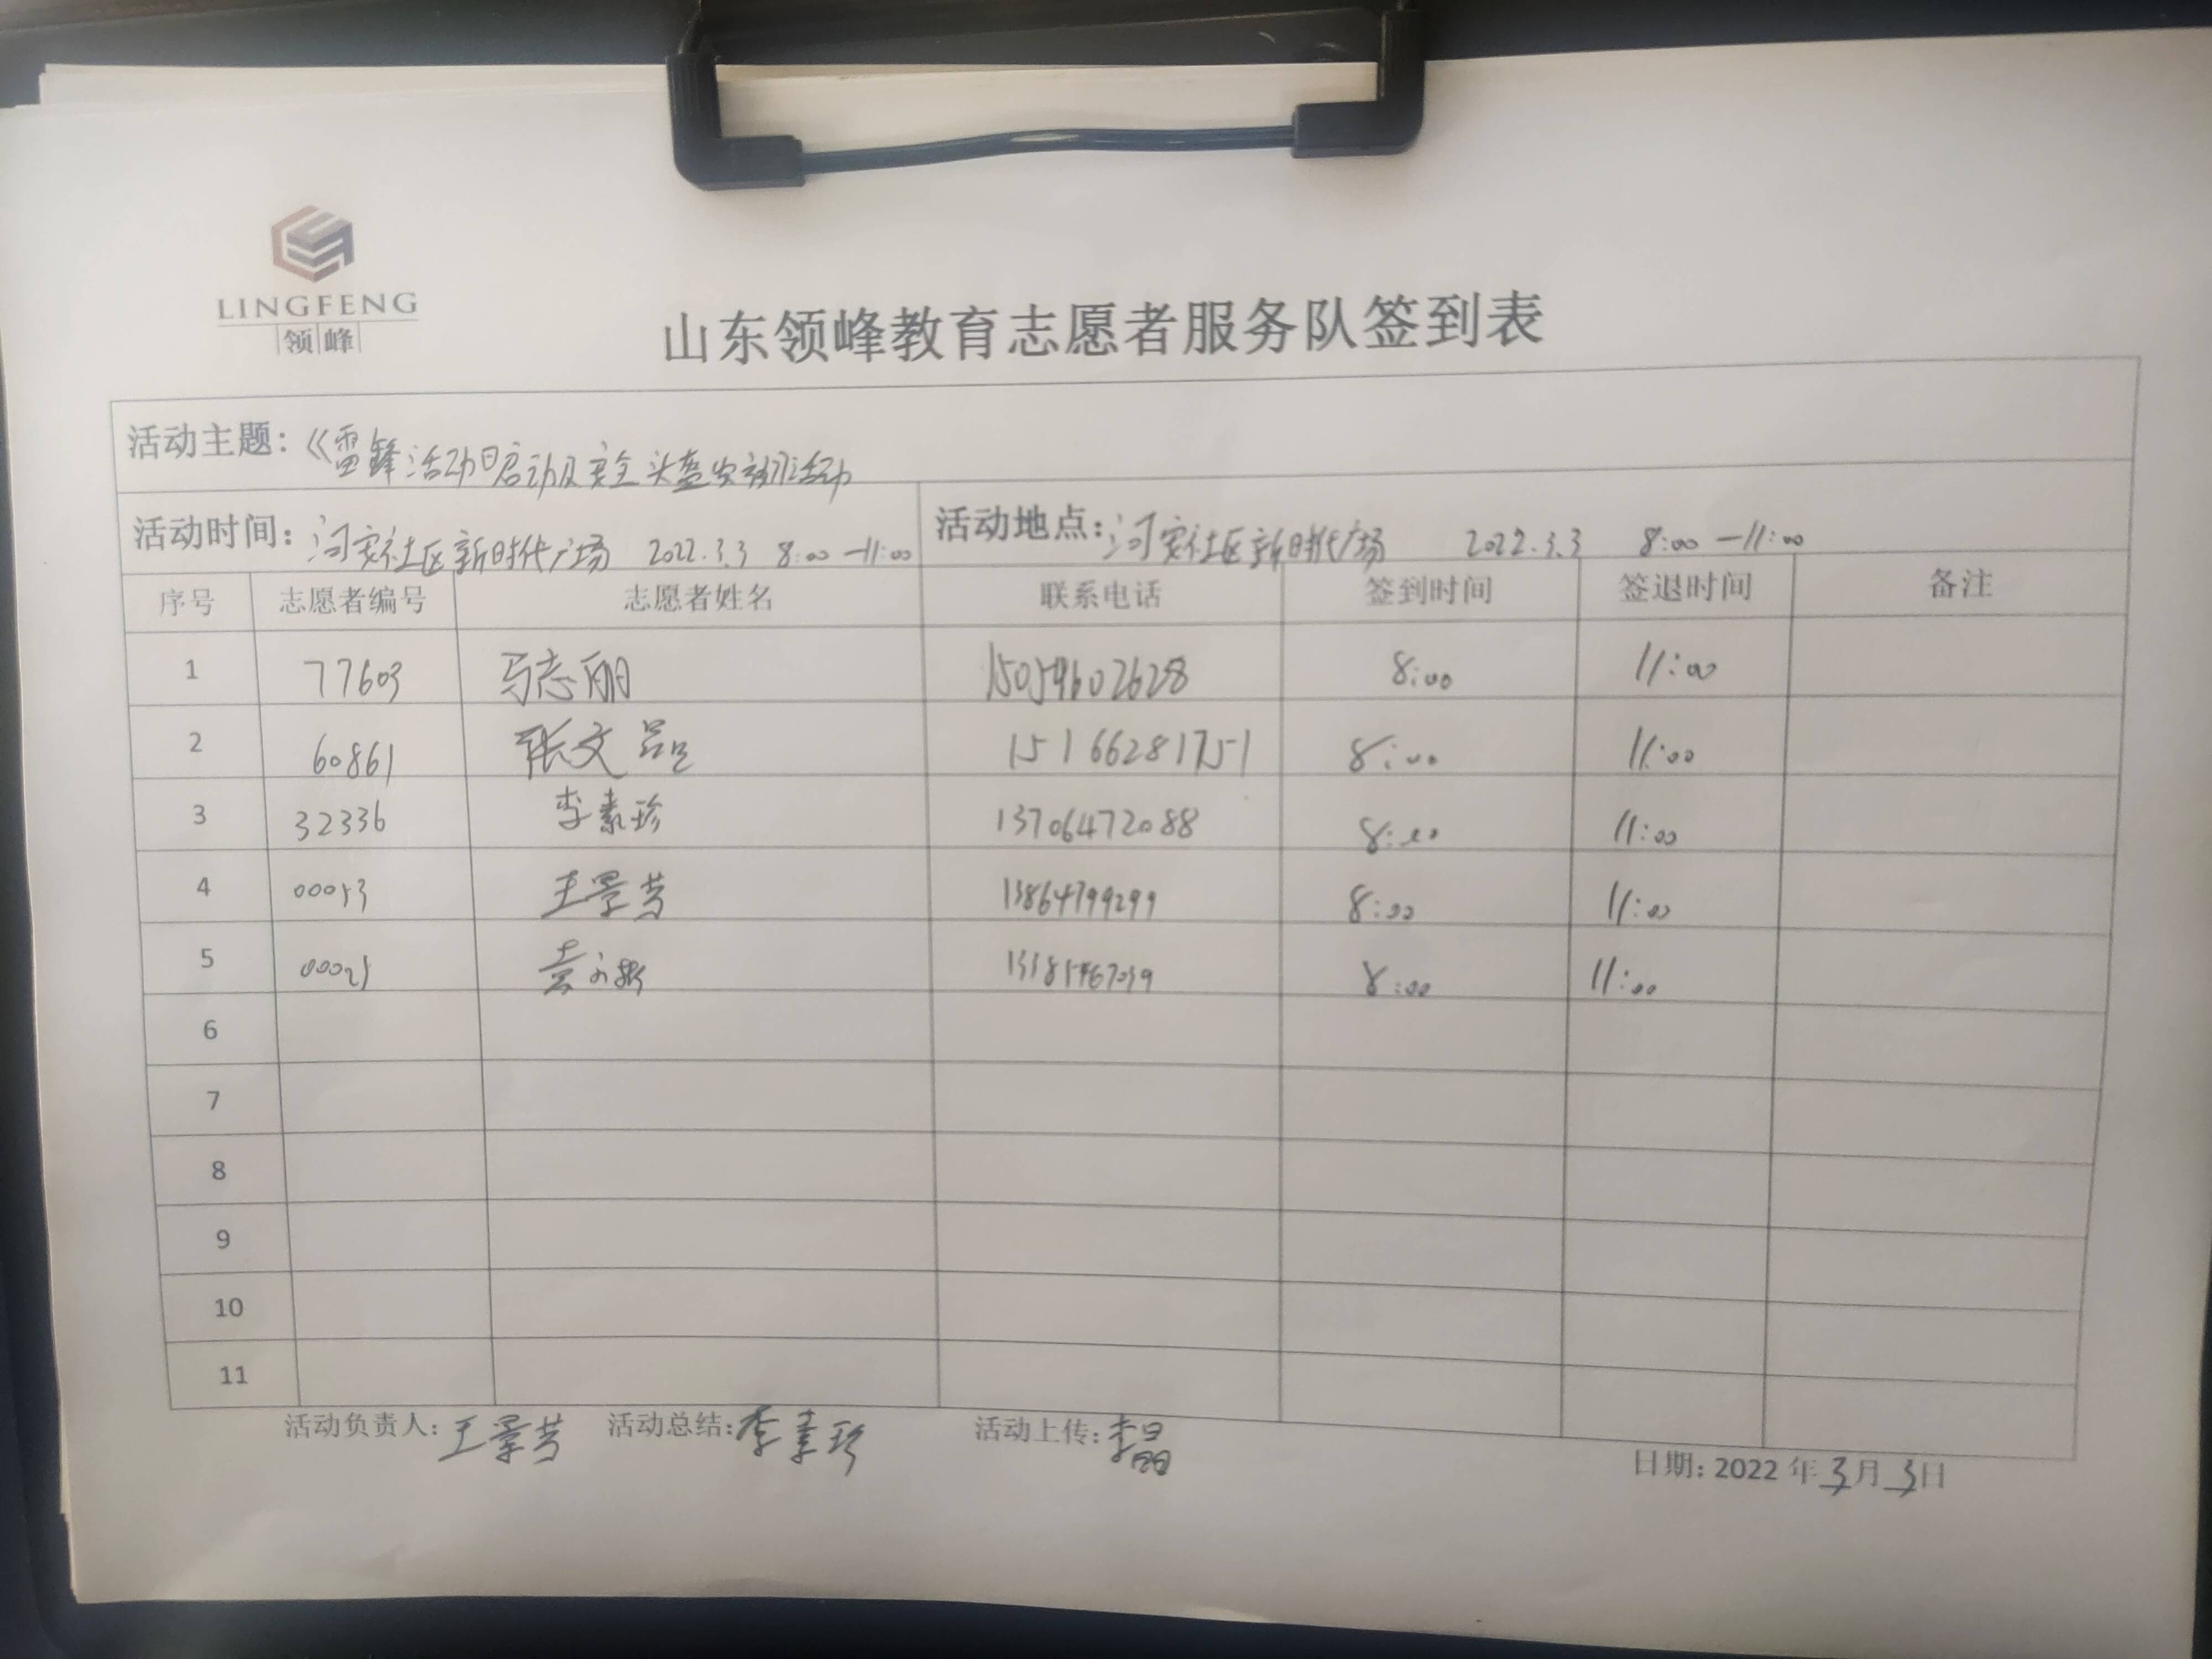 LINGFENG
领峰
山东领峰教育志愿者服务队签到表
活动主题：《雷锋活动日启动及安全头盔发放活动
活动时间： 河安社区新时代广场 2022.3.3 8:00—11:00 活动地点: 河安社区新时代广场 2022.3.3 8:00—11:00
序号 志愿者编号 志愿者姓名 联系电话 签到时间 签退时间 备注
1 77603 马志丽 8:00 11:00
2 60861 张文 15166281751 8:00 11:00
3 32336 李素珍 13706472088 8:00 11:00
4 00053 王景芳 13864799299 8:00 11:00
5 00025 8:00 11:00
6
7
8
9
10
11
活动负责人: 王景芳 活动总结: 李素珍 活动上传: 李晶
日期: 2022 年 3 月 3 日